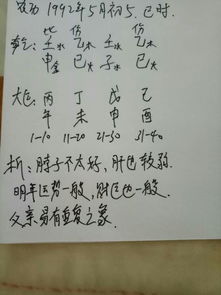 农历1992年5月初5.巳时.
比 伤 伤
乾：土水 乙木 土水 乙木
申金 巳火 子水 巳火
大运：丙 丁 戊 己
午 未 申 酉
1-10 11-20 21-30 31-40
析：脖子不太好，肝也较弱.
明年运势一般，财运也一般.
父亲易有重复之象.